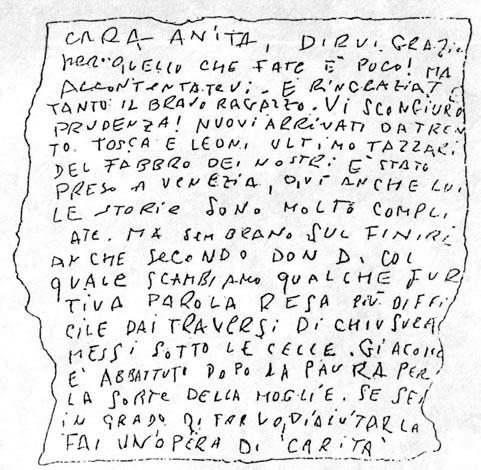 CARA ANITA, DIRVI GRAZIE
PER QUELLO CHE FATE È POCO! MA
ACCONTENTATEVI. E RINGRAZIATE
TANTO IL BRAVO RAGAZZO. VI SCONGIURO
PRUDENZA! NUOVI ARRIVATI DA TREN
TO. TOSCA E LEONI ULTIMO TAZZARI
DEL FABBRO DEI NOSTRI È STATO
PRESO A VENEZIA, QUI ANCHE LUI
LE STORIE SONO MOLTO COMPLI
ATE. MA SEMBRANO SUL FINIRE
ANCHE SECONDO DON D. COL
QUALE SCAMBIAMO QUALCHE FUR
TIVA PAROLA RESA PIÙ DIFFI
CILE DAI TRAVERSI DI CHIUSURA
MESSI SOTTO LE CELLE. GIACOMO
È ABBATTUTO DOPO LA PAURA PER
LA SORTE DELLA MOGLIE. SE SEI
IN GRADO DI D'AIUTARLA
FAI UN'OPERA DI CARITÀ